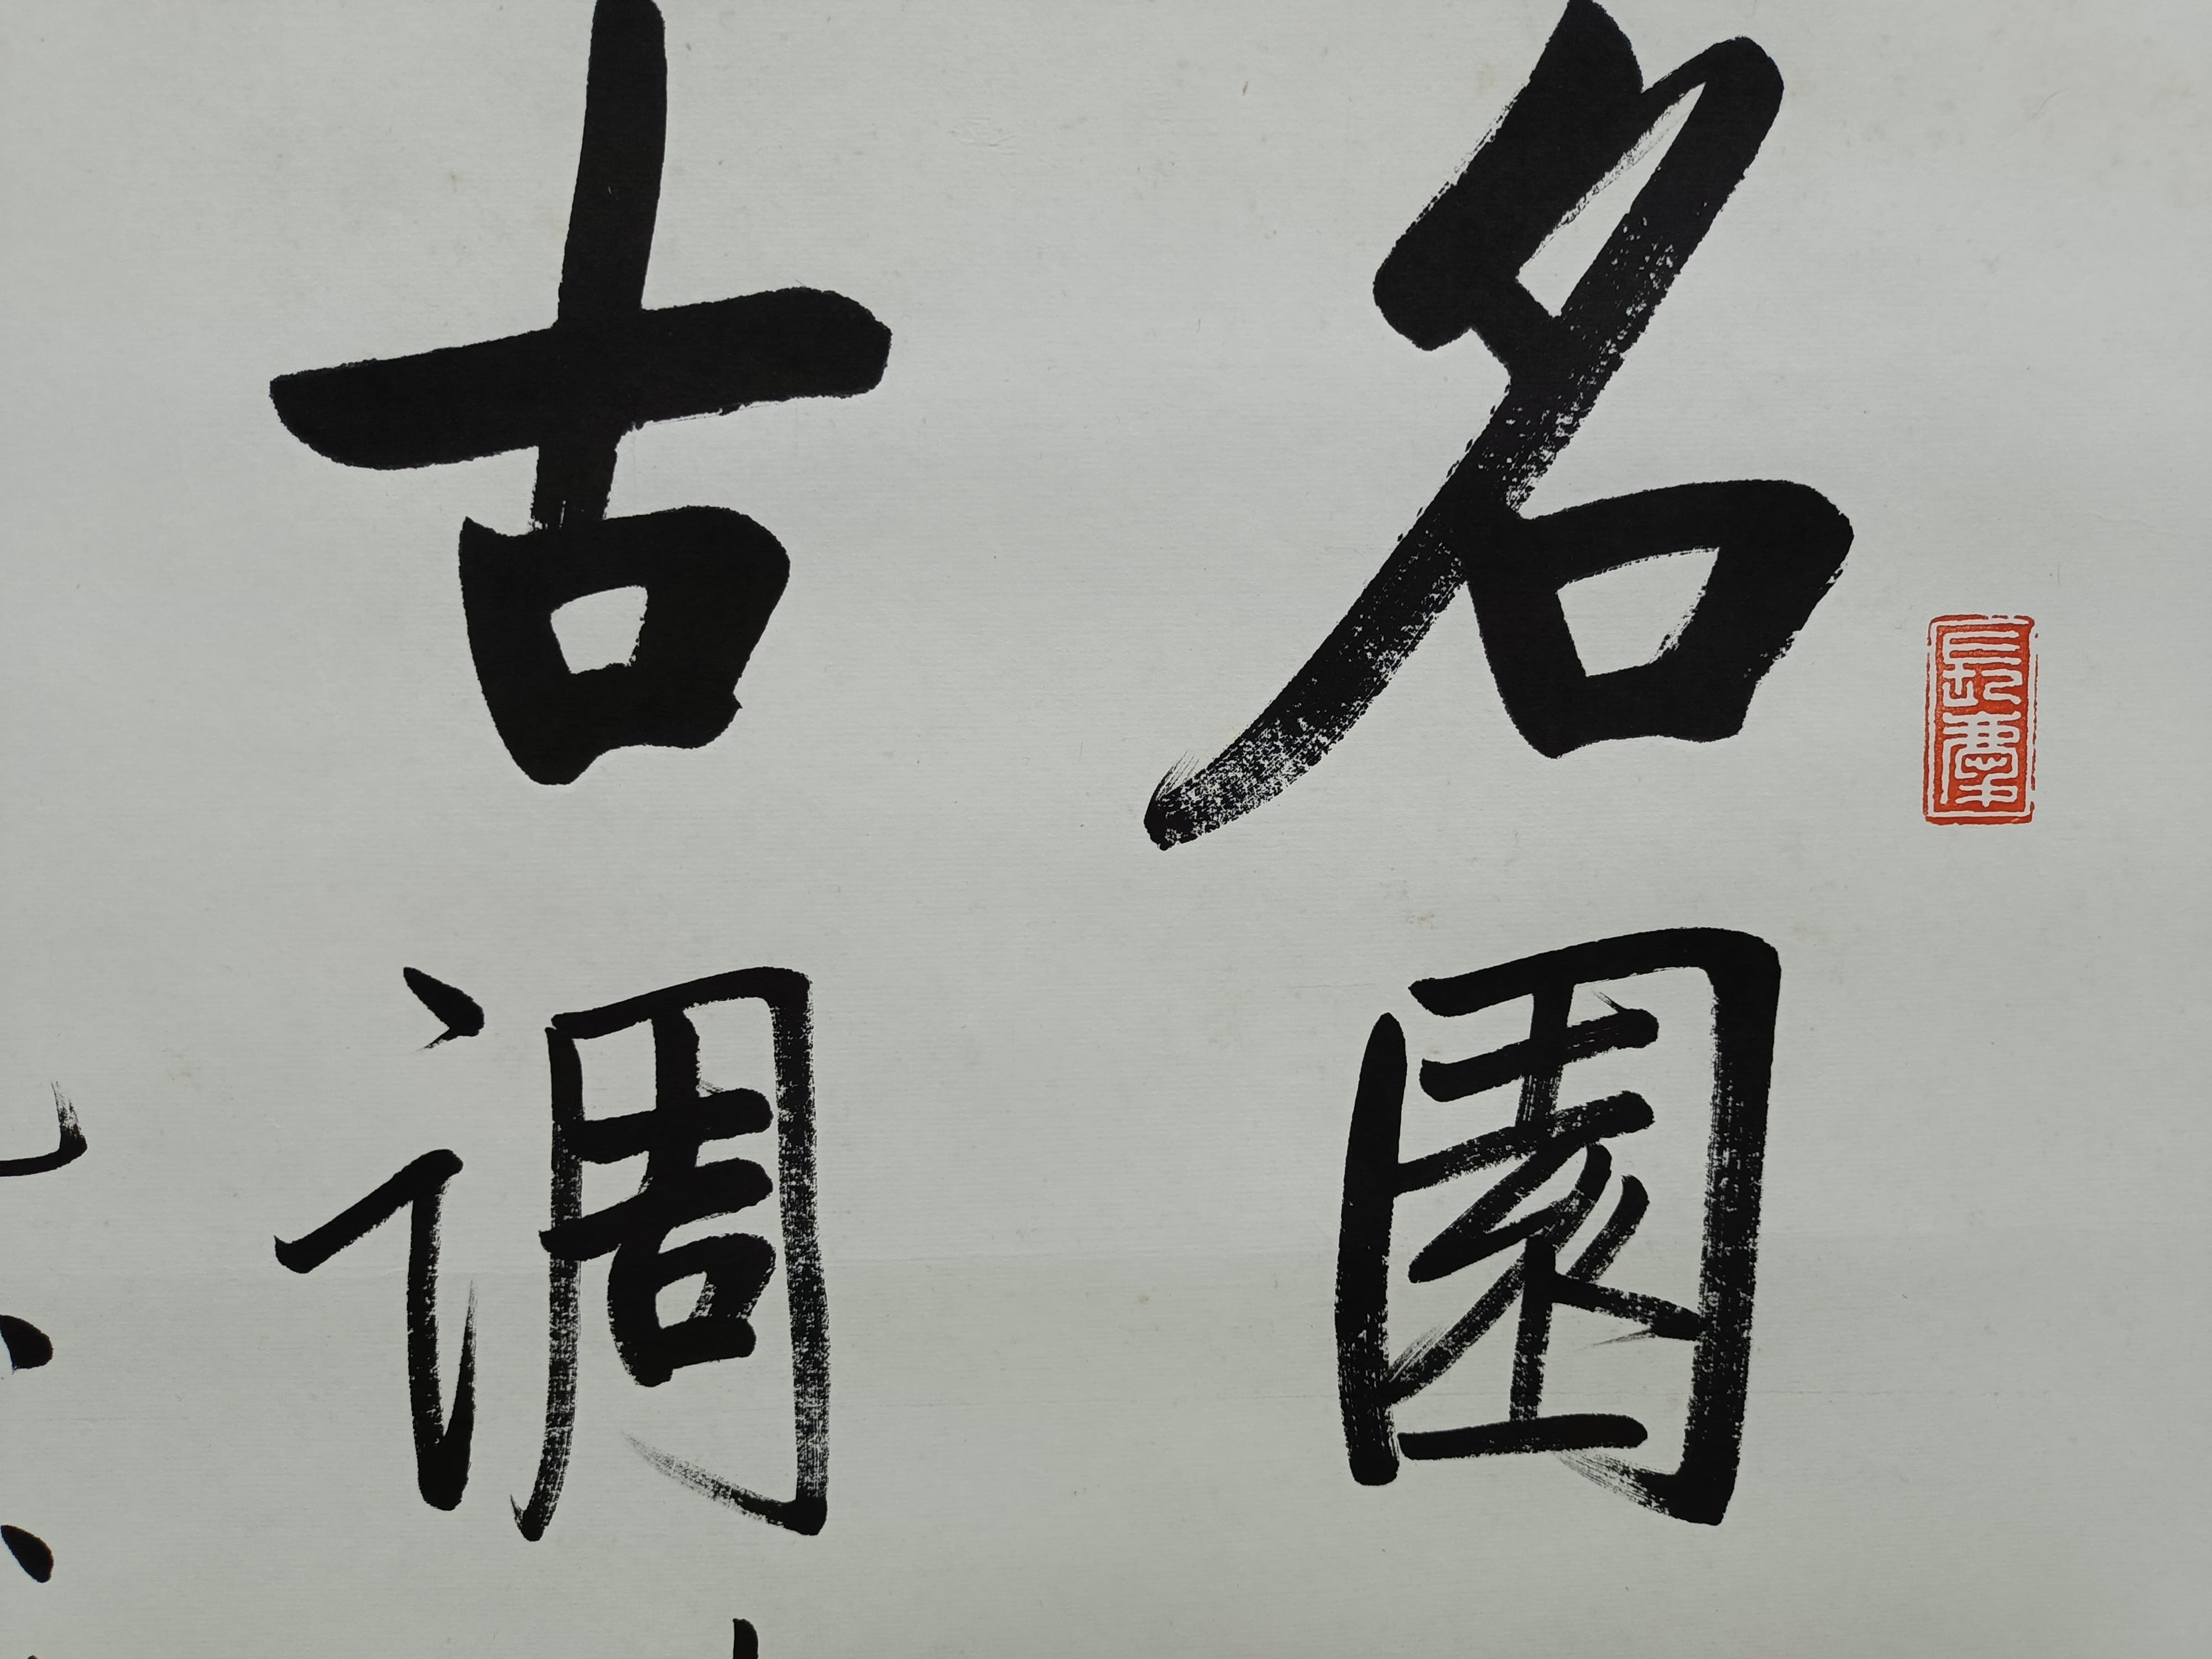 名園
古调